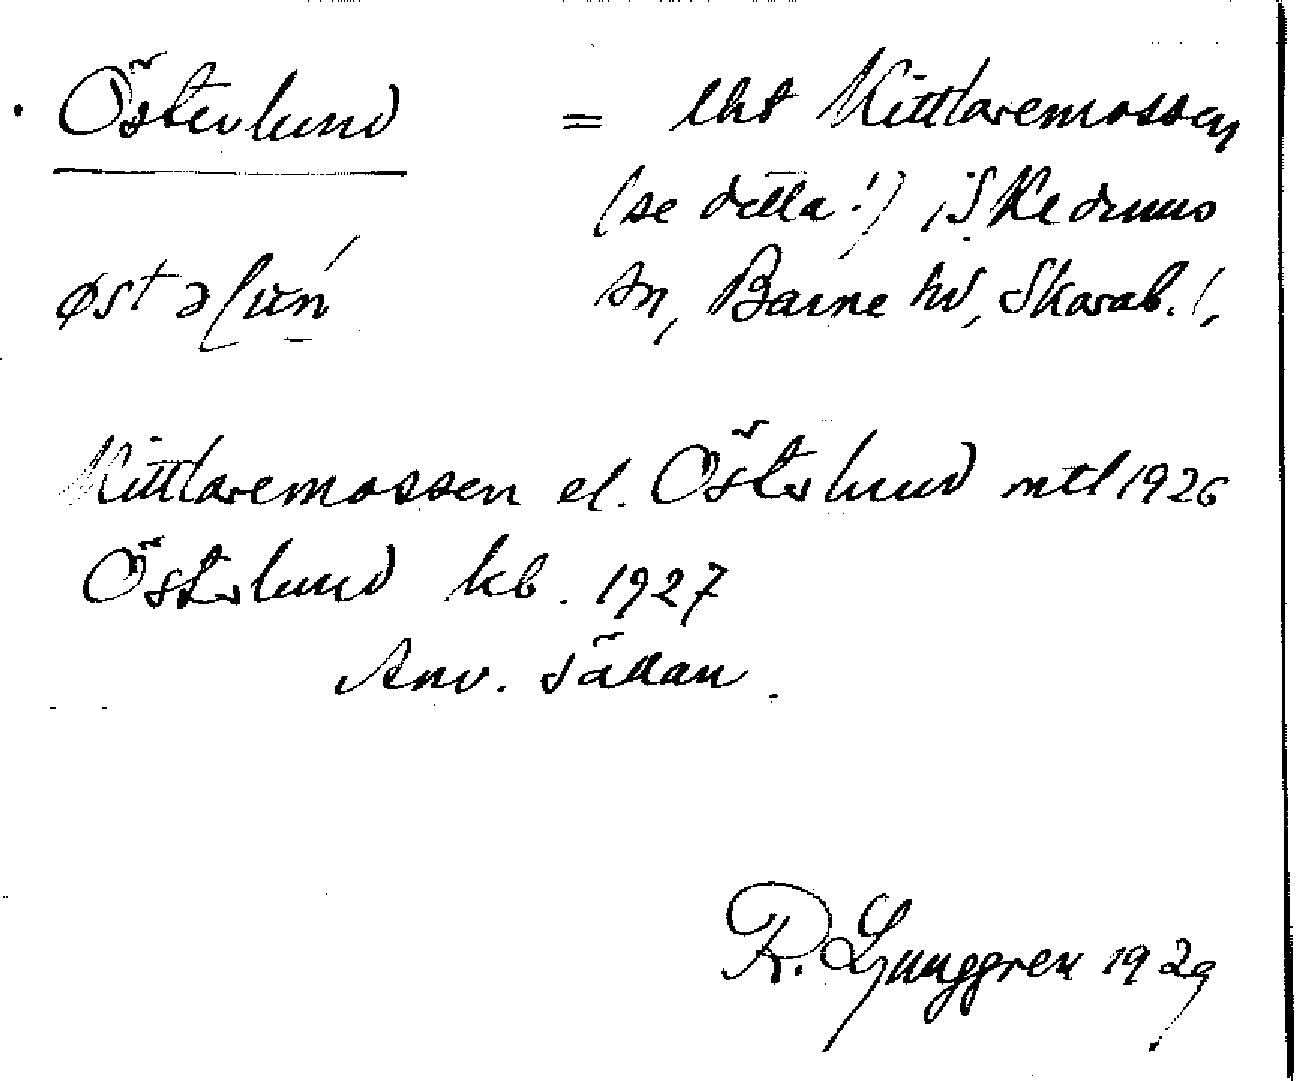 Österlund = lht Kittlaremossen
(se detta!) i S. Kedums
øst ə lun
sn, Barne hd, Skarab. l,
Kittlaremossen el. Österlund mtl 1926
Österlund kb. 1927
Anv. sådan.
R. Ljunggren 1929